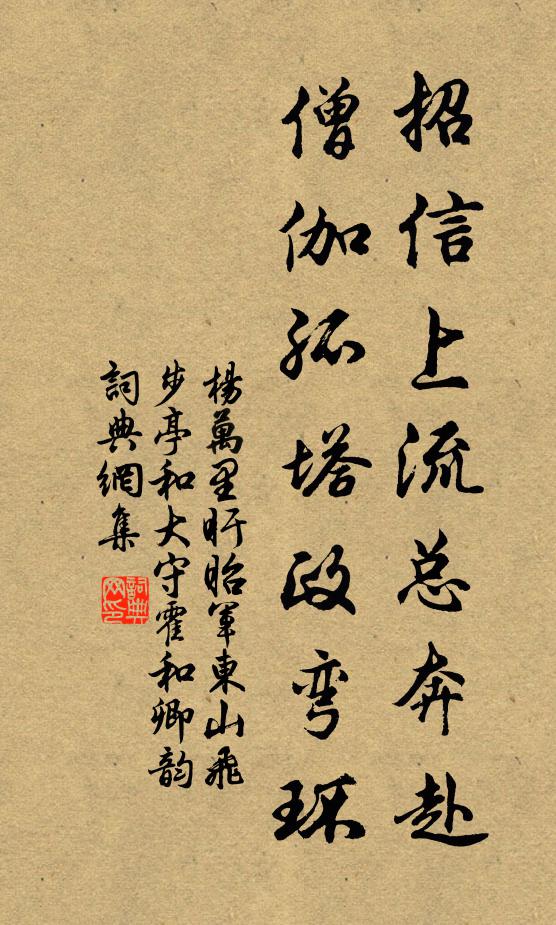 招信上流总奔赴
僧伽孤塔政弯环
楊萬里盱眙軍東山飛
步亭和大守霍和卿韵
詞典網集
詞典网印